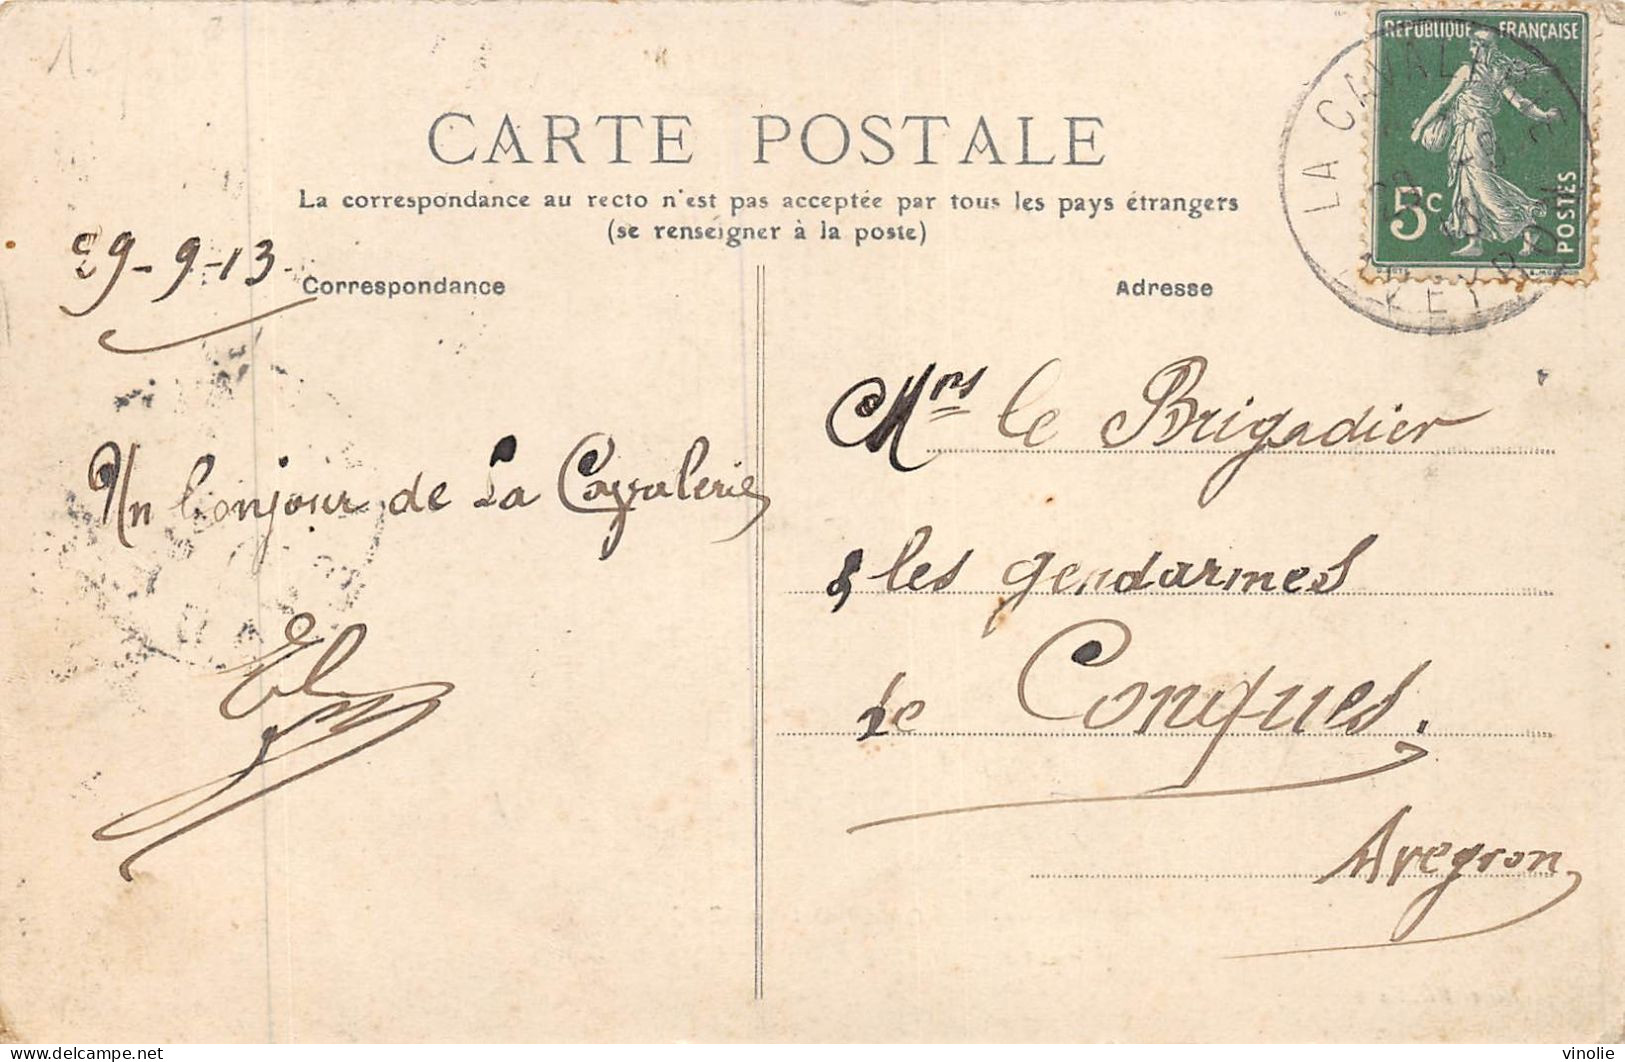 1.
CARTE POSTALE
La correspondance au recto n'est pas acceptée par tous les pays étrangers
(se renseigner à la poste)
29-9-13
Correspondance
Un bonjour de La Cavalerie
Adresse
REPUBLIQUE FRANÇAISE
5c
POSTES
LA CAVALERIE
AVEYRON
Mrs le Brigadier
& les gendarmes
de Conques.
Aveyron
delcampe.net
vinolie